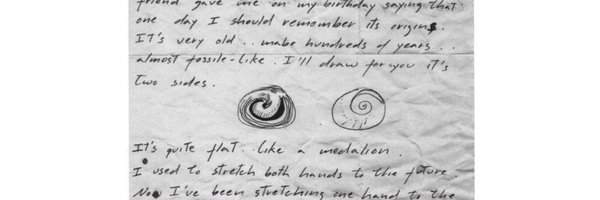 friend gave me on my birthday saying that
one day I should remember its origins.
It's very old .. mabe hundreds of years ..
almost fossile-like. I'll draw for you it's
two sides.
It's quite flat.. Like a medalion.
I used to stretch both hands to the future.
Now I've been stretching one hand to the